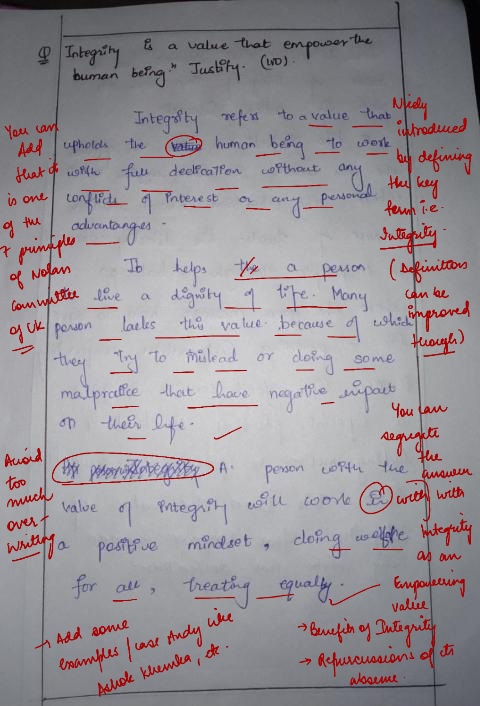 Q Integrity is a value that empower the
human being." Justify. (10).
Integrity refers to a value that
upholds the value human being to work
with full dedication without any
conflicts of interest or any personal
advantanges.
It helps the a person
live a dignity of life. Many
person lacks this value because of which
they try to mislead or doing some
malpratice that have negative impact
on their life.
A person with the
value of integrity will work in with
a positive mindset, doing welfare
for all, treating equally.
You can
Add
that it
is one
of the
7 principles
of Nolan
committee
of UK
Avoid
too
much
over-
writing
Nicely
introduced
by defining
the key
term i.e.
Integrity.
(Definition
can be
improved
though)
You can
segregate
the
answer
with
Integrity
as an
Empowering
value
→ Benefits of Integrity
→ Repurcussions of its
absence.
→ Add some
examples / case study like
Ashok Khemka, etc.